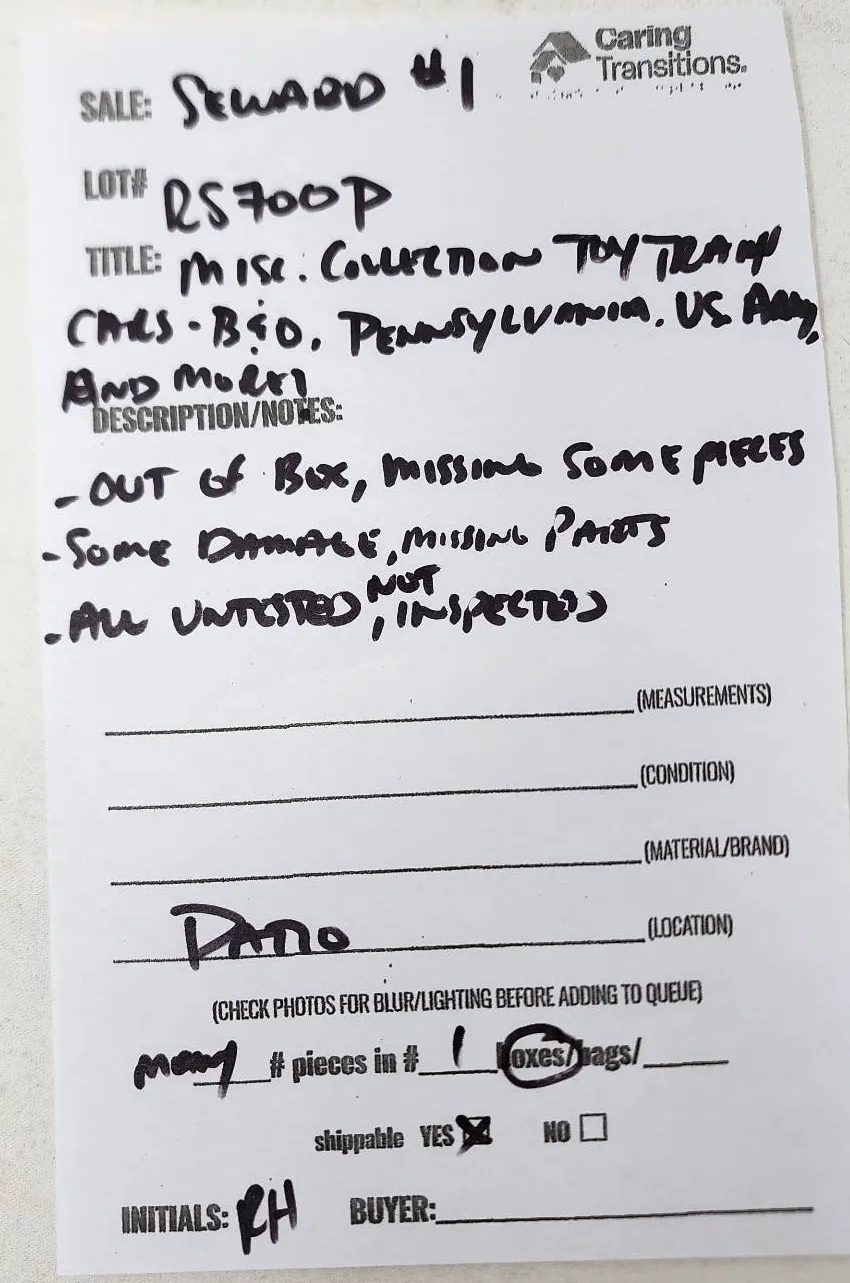 Caring
Transitions.
SALE: SEWARD #1
LOT# RS700P
TITLE: MISC. COLLECTION TOY TRAIN
CARS - B&O, PENNSYLVANIA, US ARMY,
AND MORE!
DESCRIPTION/NOTES:
- OUT OF BOX, MISSING SOME PIECES
- SOME DAMAGE, MISSING PARTS
- ALL UNTESTED, NOT INSPECTED
(MEASUREMENTS)
(CONDITION)
(MATERIAL/BRAND)
PATIO (LOCATION)
(CHECK PHOTOS FOR BLUR/LIGHTING BEFORE ADDING TO QUEUE)
many # pieces in # 1 boxes/bags/
shippable YES NO
INITIALS: RH BUYER: